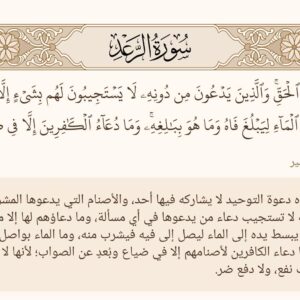 سُورَةُ الرَّعْدِ
الْحَقِّ ۖ وَالَّذِينَ يَدْعُونَ مِن دُونِهِ لَا يَسْتَجِيبُونَ لَهُم بِشَيْءٍ إِلَّا
الْمَاءِ لِيَبْلُغَ فَاهُ وَمَا هُوَ بِبَالِغِهِ ۚ وَمَا دُعَاءُ الْكَافِرِينَ إِلَّا فِي
دعوة التوحيد لا يشاركه فيها أحد، والأصنام التي يدعوها
لا تستجيب دعاء من يدعوها في أي مسألة، وما دعاؤهم لها إلا
يبسط يده إلى الماء ليصل إلى فيه فيشرب منه، وما الماء بواصل
دعاء الكافرين لأصنامهم إلا في ضياع وبُعدٍ عن الصواب؛ لأنها لا
نفع، ولا دفع ضر.